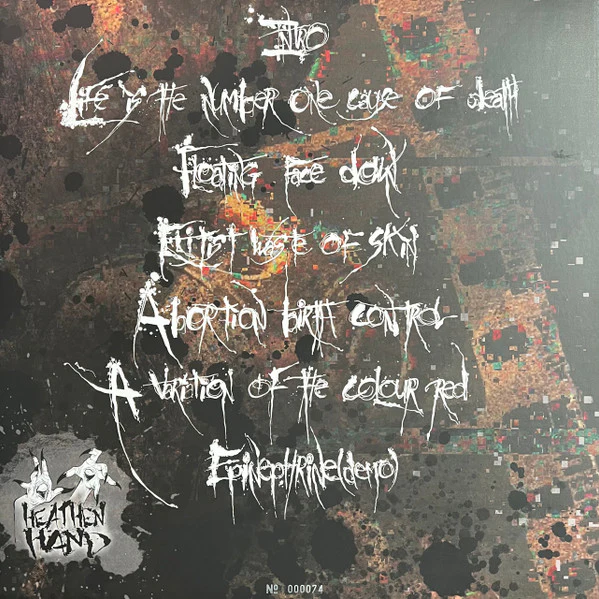 Intro
Life is the number one cause of death
Floating face down
Elitist waste of skin
Abortion birth control
A variation of the colour red
Epinephrine (demo)
HEATHEN
HAND
No 000074